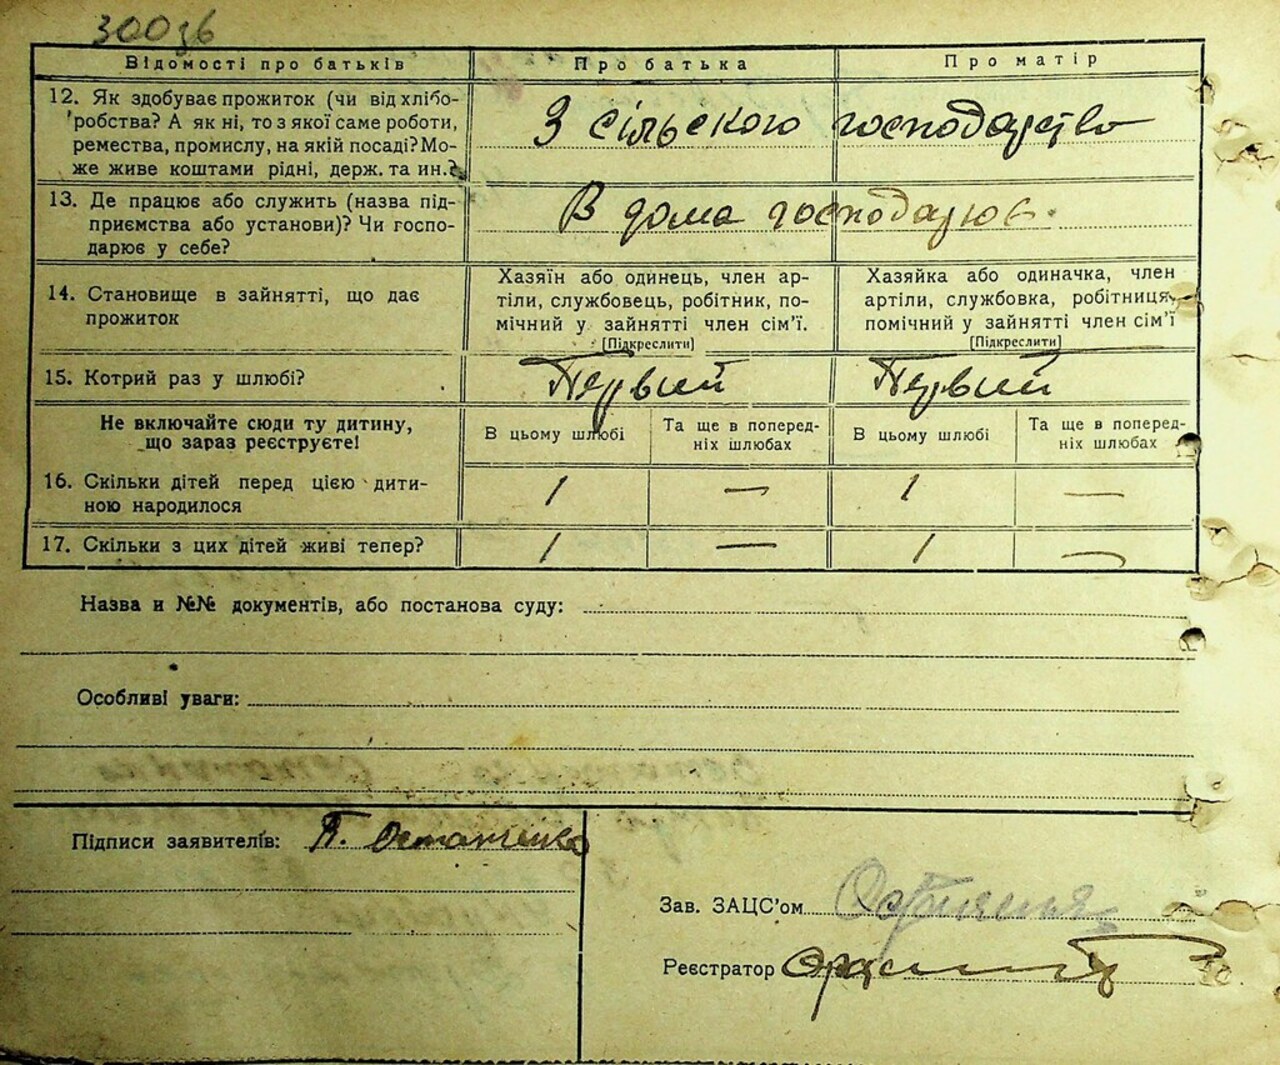 Відомості про батьків
Про батька
Про матір
12. Як здобуває прожиток (чи від хлібо-
робства? А як ні, то з якої саме роботи,
ремества, промислу, на якій посаді? Мо-
же живе коштами рідні, держ. та ин.?
З сільського господарство
13. Де працює або служить (назва під-
приємства або установи)? Чи госпо-
дарює у себе?
В дома господарює.
14. Становище в зайнятті, що дає
прожиток
Хазяїн або одинець, член ар-
тіли, службовець, робітник, по-
мічний у зайнятті член сім'ї.
[Підкреслити]
Хазяйка або одиначка, член
артіли, службовка, робітниця,
помічний у зайнятті член сім'ї
[Підкреслити]
15. Котрий раз у шлюбі?
Первий
Первий
Не включайте сюди ту дитину,
що зараз реєструєте!
В цьому шлюбі
Та ще в поперед-
ніх шлюбах
В цьому шлюбі
Та ще в поперед-
ніх шлюбах
16. Скільки дітей перед цією дити-
ною народилося
1 — 1 —
17. Скільки з цих дітей живі тепер?
1 — 1 —
Назва и №№ документів, або постанова суду:
Особливі уваги:
Підписи заявителів: П. Остапенко
Зав. ЗАЦС'ом
Реєстратор